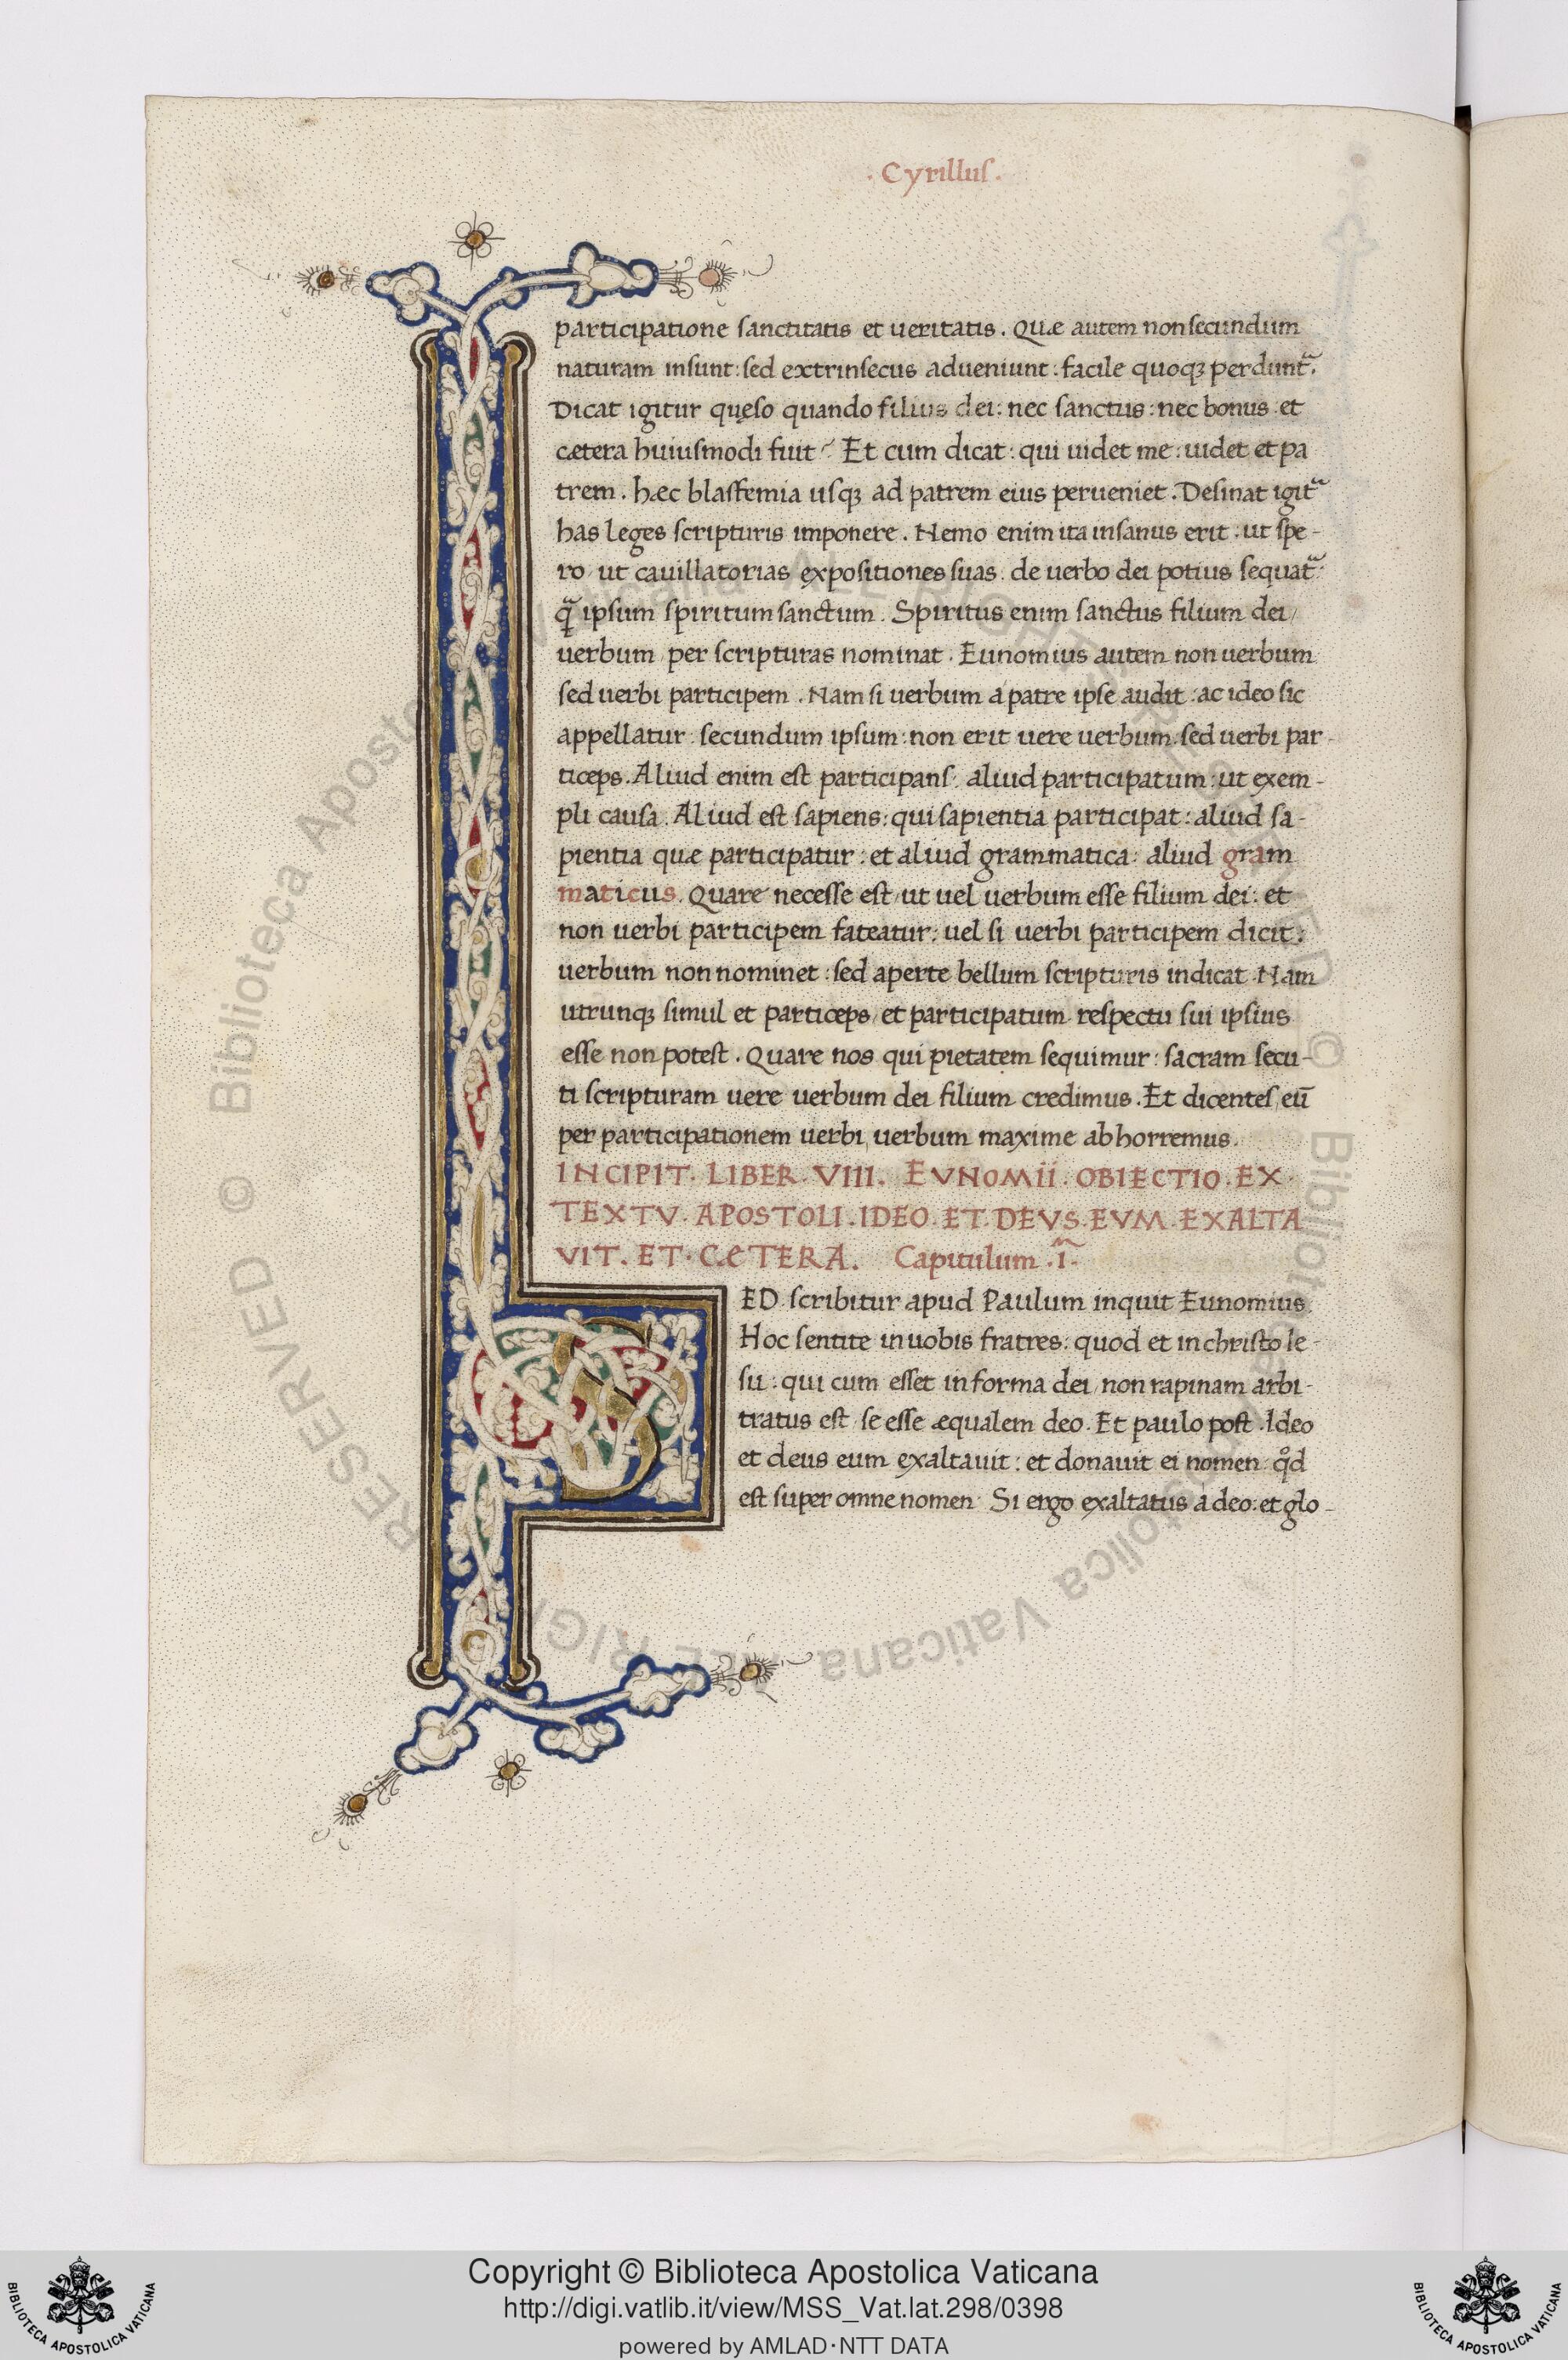 · Cyrillus ·
participatione sanctitatis et ueritatis. Quæ autem non secundum
naturam insunt: sed extrinsecus adueniunt: facile quoqꝫ perdunt᷑.
Dicat igitur quęso quando filius dei: nec sanctus: nec bonus et
cætera huiusmodi fuit? Et cum dicat: qui uidet me: uidet et pa
trem. hæc blasfemia usqꝫ ad patrem eius perueniet. Desinat igit᷑
has leges scripturis imponere. Nemo enim ita insanus erit: ut spe-
ro/ ut cauillatorias expositiones suas. de uerbo dei potius sequat᷑:
qᷓ ipsum spiritum sanctum. Spiritus enim sanctus filium dei/
uerbum/ per scripturas nominat. Eunomius autem non uerbum
sed uerbi participem. Nam si uerbum a patre ipse audit: ac ideo sic
appellatur: secundum ipsum: non erit uere uerbum: sed uerbi par-
ticeps. Aliud enim est participans: aliud participatum: ut exem-
pli causa. Aliud est sapiens: qui sapientia participat: aliud sa-
pientia quæ participatur: et aliud grammatica: aliud gram
maticus. Quare necesse est/ ut uel uerbum esse filium dei: et
non uerbi participem fateatur: uel si uerbi participem dicit:
uerbum non nominet: sed aperte bellum scripturis indicat. Nam
utrunqꝫ simul et particeps/ et participatum respectu sui ipsius
esse non potest. Quare nos qui pietatem sequimur: sacram secu-
ti scripturam uere uerbum dei filium credimus. Et dicentes/ eū
per participationem uerbi/ uerbum maxime abhorremus.
INCIPIT. LIBER. VIII. EVNOMII. OBIECTIO. EX.
TEXTV. APOSTOLI. IDEO. ET. DEVS. EVM. EXALTA
VIT. ET. CÆTERA. Capitulum .i.
SED scribitur apud Paulum inquit Eunomius.
Hoc sentite in uobis fratres: quod et in christo Ie-
su: qui cum esset in forma dei/ non rapinam arbi-
tratus est/ se esse æqualem deo. Et paulo post. Ideo
et deus eum exaltauit: et donauit ei nomen qͦd
est super omne nomen. Si ergo exaltatus a deo: et glo-
Copyright © Biblioteca Apostolica Vaticana
http://digi.vatlib.it/view/MSS_Vat.lat.298/0398
powered by AMLAD·NTT DATA
BIBLIOTECA APOSTOLICA VATICANA
BIBLIOTECA APOSTOLICA VATICANA